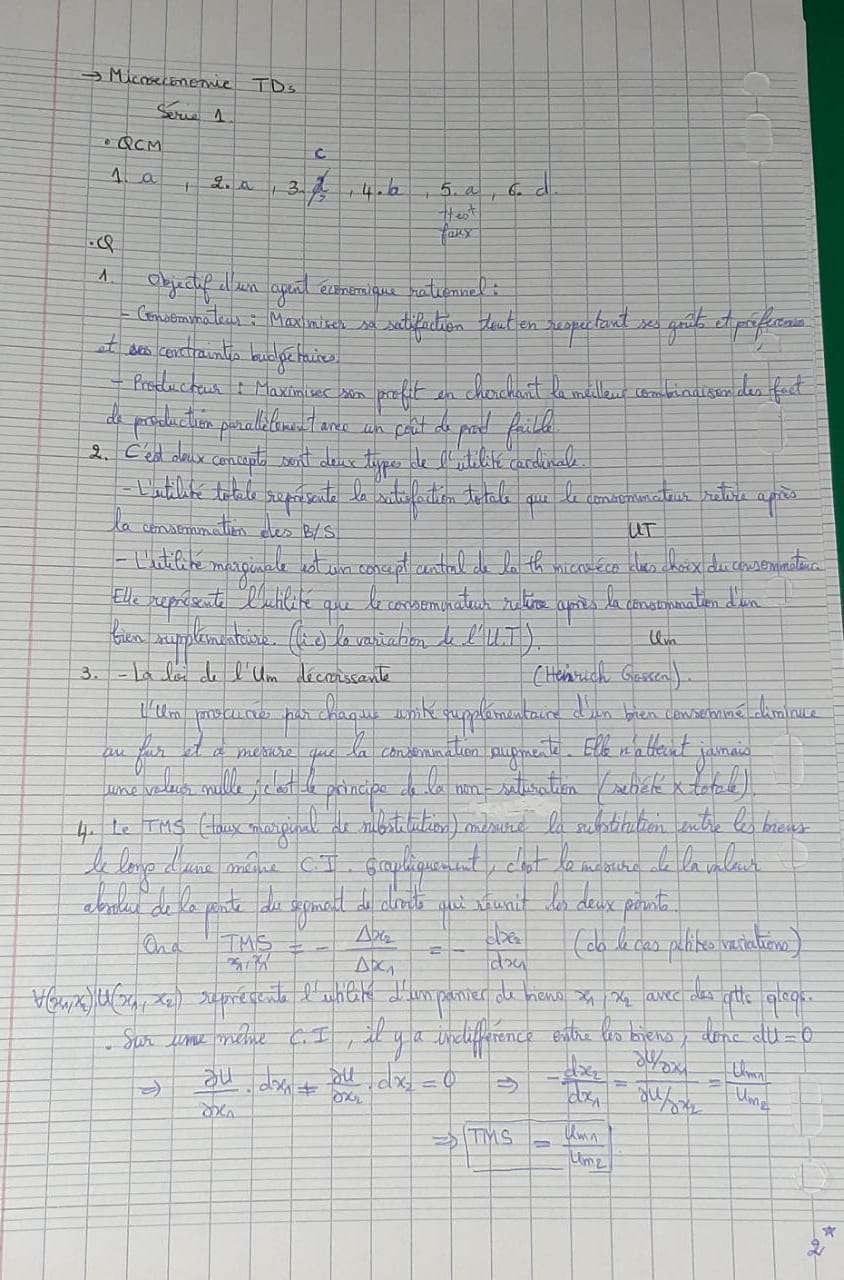 → Microeconomie TDs
Série 1.
• QCM
c
1. a , 2. a , 3. , 4. b , 5. a , 6. d.
faux
• Q
1. Objectif d'un agent économique rationnel :
- Consommateur : Maximiser sa satifaction tout en respectant ses goûts et préférences
et ses contraintes budgétaires.
- Producteur : Maximiser son profit en cherchant la meilleur combinaison des fact
de production parallèlement avec un coût de prod faible.
2. C'est deux concepts sont deux types de l'utilité cardinale.
- L'utilité totale représente la satisfaction totale que le consommateur retire après
la consommation des B/S UT
- L'utilité marginale est un concept central de la th microéco des choix du consommateur.
Elle représente l'utilité que le consommateur retire après la consommation d'un
bien supplémentaire. (i.e) la variation de l'U.T). Um
3. - La loi de l'Um décroissante (Heinrich Gossen).
L'Um procurée par chaque unité supplémentaire d'un bien consommé diminue
au fur et à mesure que la consommation augmente. Elle n'atteint jamais
une valeur nulle, c'est le principe de la non-saturation (satiété x totale).
4. Le TMS (taux marginal de substitution) mesure la substitution entre les biens
le long d'une même C.I. Graphiquement, c'est la mesure de la valeur
absolue de la pente du segment de droite qui réunit les deux points.
On a TMS = - Δx2/Δx1 = - dx2/dx1 (ds le cas petites variations)
∀(x1,x2) U(x1, x2) représente l'utilité d'un panier de biens x1, x2 avec des qtts
. Sur une même C.I, il y a indifférence entre les biens, donc dU=0
⇒ ∂U/∂x1 . dx1 + ∂U/∂x2 . dx2 = 0 ⇒ - dx2/dx1 = ∂U/∂x1 / ∂U/∂x2 = Um1/Um2
⇒ TMS = Um1/Um2
2*